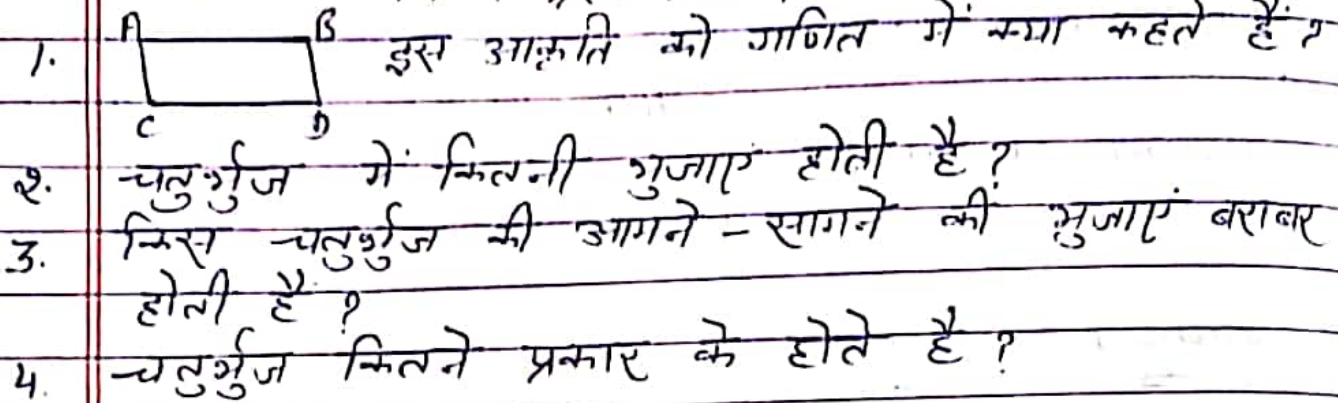 A B
1. इस आकृति को गणित में क्या कहते हैं?
C D
2. चतुर्भुज में कितनी भुजाएं होती है?
3. किस चतुर्भुज की आमने - सामने की भुजाएं बराबर
होती है?
4. चतुर्भुज कितने प्रकार के होते है?